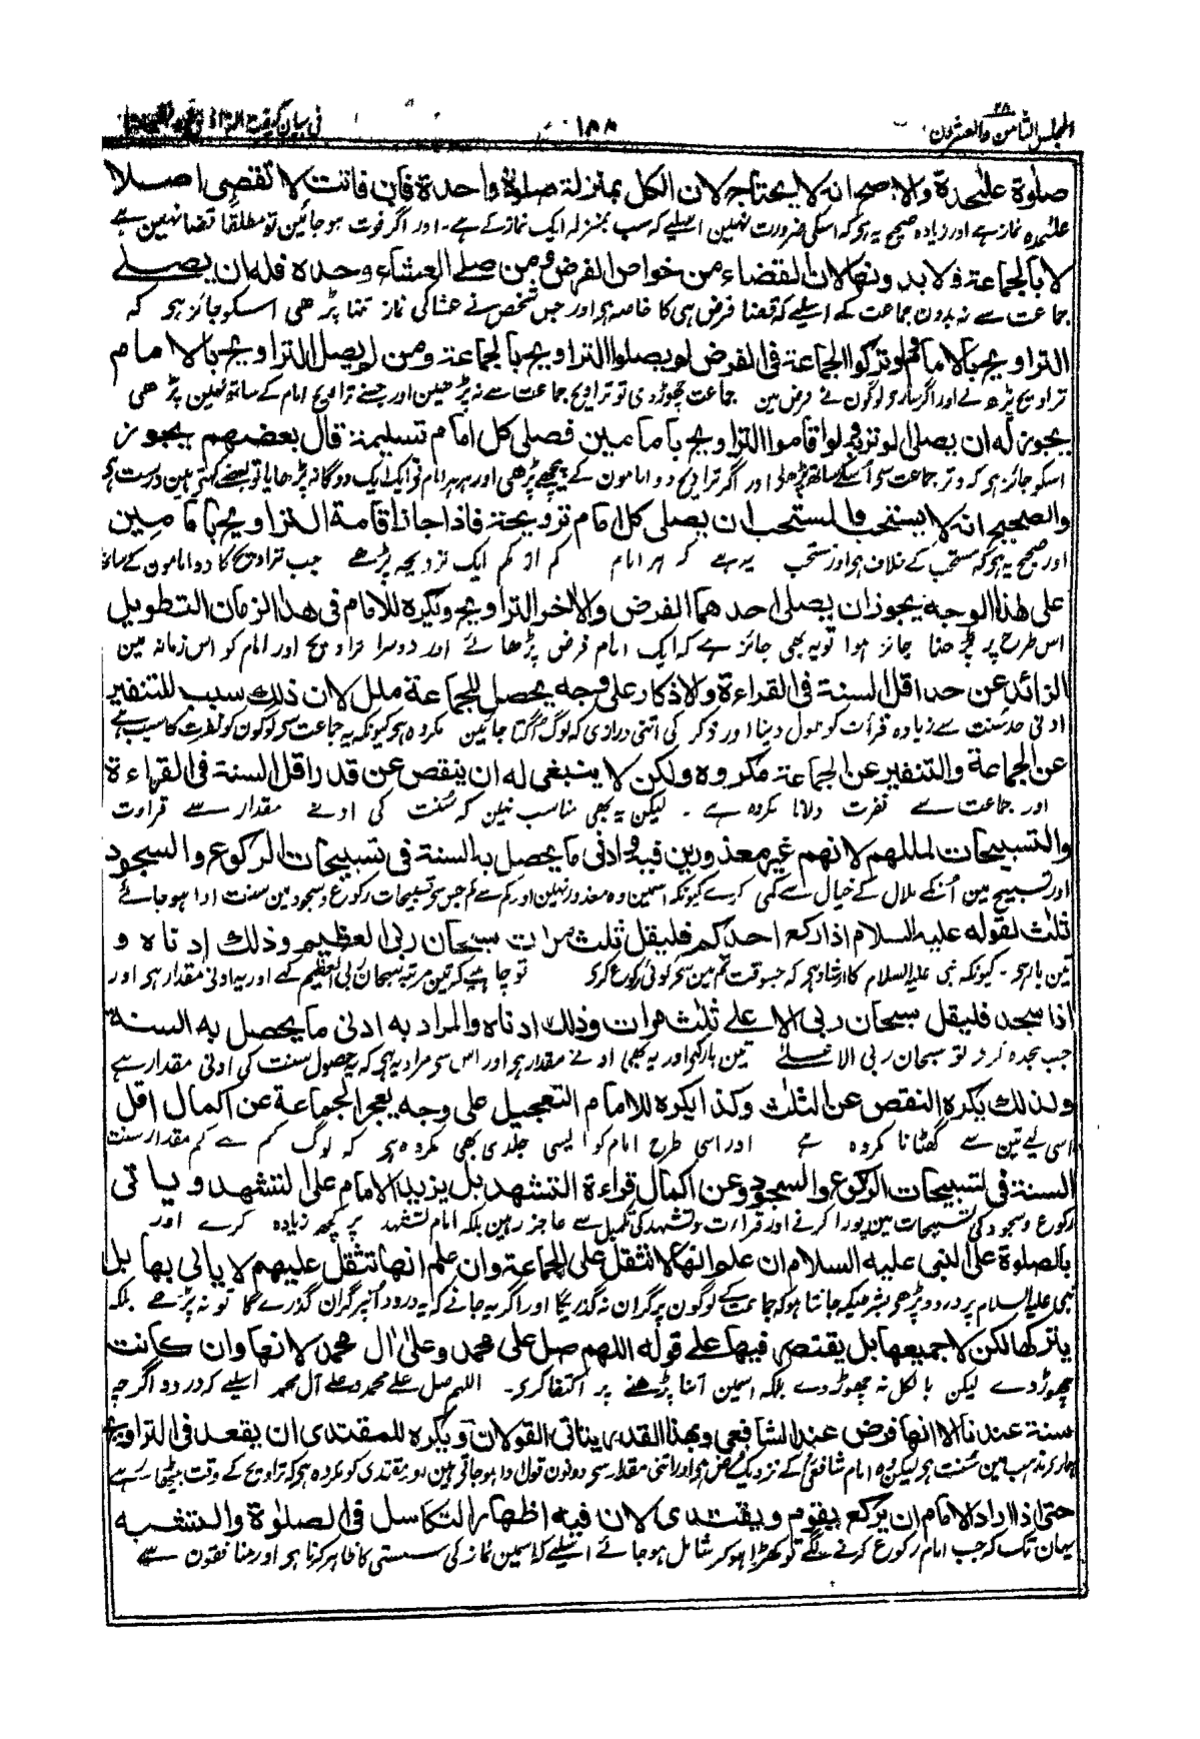 المجلس الثامن والعشرون ٢٨
١٨٨
فی بیان کیفیت التراویح
صلوة علیحدة والاصح انه لا یحتاج لان الکل بمنزلة صلوة واحدة فان فاتت لا تقضی اصلا
علیحدہ نماز ہے اور زیادہ صحیح یہ ہو کہ اسکی ضرورت نہین اسلیے کہ سب بمنزلہ ایک نماز کے ہے۔ اور اگر فوت ہو جائین تو مطلقا قضا نہین ہے
لا بالجماعة ولا بدونها لان القضاء من خواص الفرض ومن صلے العشاء وحده فله ان یصلے
جماعت سے نہ بدون جماعت کے اسلیے کہ قضا فرض ہی کا خاصہ ہو اور جس شخص نے عشا کی نماز تنہا پڑھی اسکو جائز ہو کہ
التراویح بالامام ولو ترکوا الجماعة فی الفرض لو یصلوا التراویح بالجماعة ومن لو یصل التراویح بالامام
تراویح پڑھ لے اور اگر سارو لوگون نے فرض مین جماعت چھوڑ دی تو تراویح جماعت سے نہ پڑھین اور جسنے تراویح امام کے ساتھ نہین پڑھی
یجوز له ان یصلی الوتر به ولو اقاموا التراویح بامامین فصلی کل امام تسلیمة قال بعضهم یجوز
اسکو جائز ہو کہ وتر جماعت سی اُسکے ساتھ پڑھ لے اور اگر تراویح دو امامون کے پیچھے پڑھی اور ہر ہر امام نو ایک ایک دوگانہ پڑھایا تو بعضے کہتی ہین درست ہو
والصحیح انه لا یستحب والمستحب ان یصلی کل امام ترویحة فاذا جاز اقامة التراویح بامامین
اور صحیح یہ ہو کہ مستحب کے خلاف ہو اور مستحب یہ ہے کہ ہر امام کم از کم ایک ترویحہ پڑھے جب تراویح کا دو امامون کے ساتھ
علی هذا الوجه یجوز ان یصلی احدهما الفرض والاخر التراویح ویکره للامام فی هذا الزمان التطویل
اس طرح پر پڑھنا جائز ہوا تو یہ بھی جائز ہے کہ ایک امام فرض پڑھائے اور دوسرا تراویح اور امام کو اس زمانہ مین
الزائد عن حد اقل السنة فی القراءة والاذکار علی وجه یحصل للجماعة ملل لان ذلك سبب للتنفیر
ادنی حد سنت سے زیادہ قرأت کو طول دینا اور ذکر کی اتنی درازی کہ لوگ اُکتا جائین مکروہ ہو کیونکہ یہ جماعت سو لوگون کو نفرت کا سبب ہے
عن الجماعة والتنفیر عن الجماعة مکروه ولکن لا ینبغی له ان ینقص عن قدر اقل السنة فی القراءة
اور جماعت سے نفرت دلانا مکروہ ہے ۔ لیکن یہ بھی مناسب نہین کہ سُنت کی ادنے مقدار سے قراوت
والتسبیحات لمللهم لانهم غیر معذورین فیه وادنی ما یحصل به السنة فی تسبیحات الرکوع والسجود
اور تسبیح مین اُنکے ملال کے خیال سے کمی کرے کیونکہ اسمین وہ معذور نہین اور کم سے کم جس سو تسبیحات رکوع و سجود مین سنت ادا ہو جائے
ثلث لقوله علیه السلام اذا رکع احدکم فلیقل ثلث مرات سبحان ربی العظیم وذلك ادناه و
تین بار ہو ۔ کیونکہ نبی علیہ السلام کا ارشاد ہو کہ جسوقت تم مین سو کوئی رکوع کرو تو چاہیے کہ تین مرتبہ سبحان ربی العظیم کے اور یہ ادنی مقدار ہو اور
اذا سجد فلیقل سبحان ربی الاعلے ثلث مرات وذلك ادناه والمراد به ادنی ما یحصل به السنة
جب سجدہ کرو تو سبحان ربی الاعلے تین بار کہو اور یہ بھی ادنے مقدار ہو اور اس سو مراد یہ ہو کہ یہ حصول سنت کی ادنی مقدار ہے
ولذلك یکره النقص عن الثلث وکذا یکره للامام التعجیل علی وجه یعجز الجماعة عن اکمال اقل
اسی لیے تین سے گھٹانا مکروہ ہے اور اسی طرح امام کو ایسی جلدی بھی مکروہ ہو کہ لوگ کم سے کم مقدار سنت
السنة فی تسبیحات الرکوع والسجود وعن اکمال قراءة التشهد بل یزید الامام علی التشهد ویاتی
رکوع و سجود کی تسبیحات مین پورا کرنے اور قراءت و تشہد کی تکمیل سے عاجز رہین بلکہ امام تشہد پر کچھ زیادہ کرے اور
بالصلوة علی النبی علیه السلام ان علم انها لا تثقل علی الجماعة وان علم انها تثقل علیهم لا یاتی بها بل
نبی علیہ السلام پر درود پڑھو بشرطیکہ جانتا ہو کہ جماعت کے لوگون پر گران نہ گذریگا اور اگر یہ جانے کہ یہ درود اُنپر گران گذرے گا تو نہ پڑھے بلکہ
یترکها لکن لا جمیعها بل یقتصر فیها علے قوله اللهم صل علی محمد وعلی اٰل محمد لانها وان کانت
چھوڑ دے لیکن بالکل نہ چھوڑ دے بلکہ اسمین اتنا پڑھنے پر اکتفا کرو ۔ اللہم صل علے محمد و علے آل محمد اسلیے کہ درود اگرچہ
سنة عندنا الا انها فرض عند الشافعی وبهذا القدر یتاتی القولان ویکره للمقتدی ان یقعد فی التراویح
ہمارے مذہب مین سُنت ہو لیکن وہ امام شافعی کے نزدیک فرض ہو اور اتنی مقدار سو دونون قول ادا ہو جاتی ہین اور مقتدی کو مکروہ ہو کہ تراویح کے وقت بیٹھا رہے
حتی اذا اراد الامام ان یرکع یقوم ویقتدی لان فیه اظهار التکاسل فی الصلوٰة والتشبه
یہان تک کہ جب امام رکوع کرنے لگے تو کھڑا ہو کر شامل ہو جائے اسلیے کہ اسمین نماز کی سستی کا ظاہر کرنا ہو اور منافقون سے